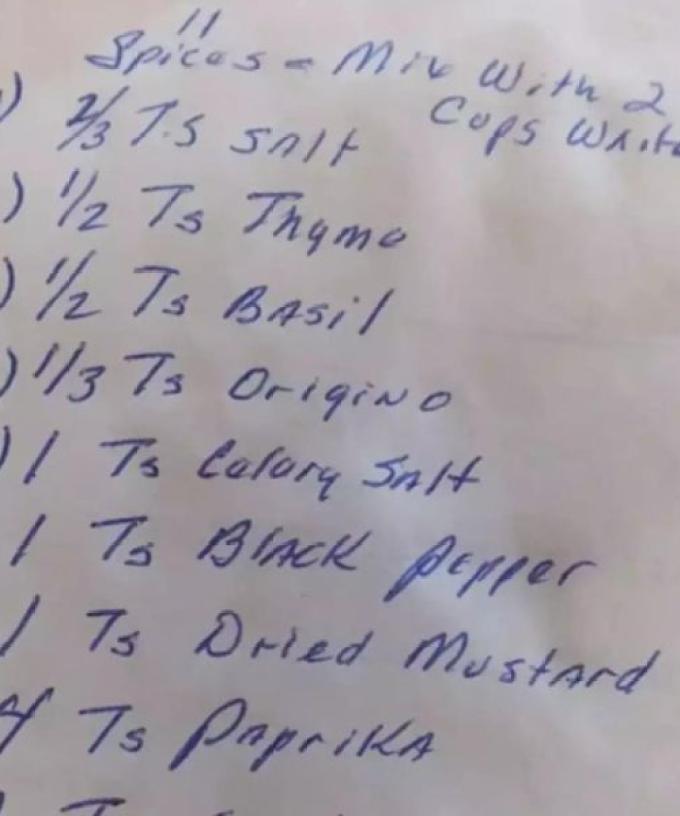 11
Spices - Mix With 2
Cups White
) 2/3 Ts Salt
) 1/2 Ts Thyme
) 1/2 Ts Basil
) 1/3 Ts Origino
) 1 Ts Celary Salt
1 Ts Black Pepper
1 Ts Dried Mustard
4 Ts Paprika